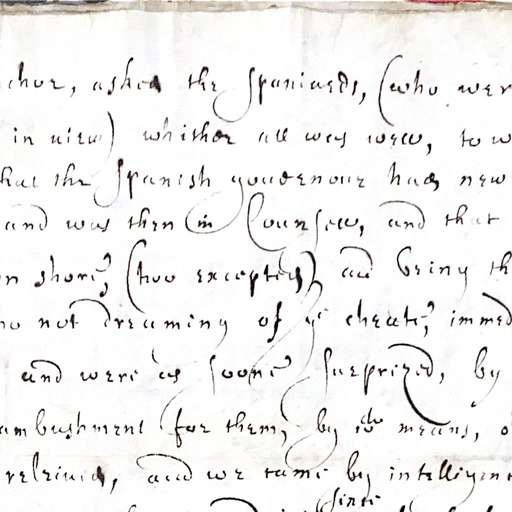 chor, asked the Spaniards, (who wer
in view) whither all was well, to w
hat the Spanish gouvernour had new
and was then in Counsell, and that
on shore, (two excepted) and being th
no not dreaming of ye cheate, immed
and were as soone surprized, by
ambushment for them, by means, o
retrivid, and we came by intelligen
since